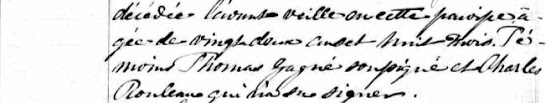 décédée l'avant veille en cette paroisse â-
gée de vingt deux ans et huit mois. Té-
moins Thomas Gagné soussigné et Charles
Rouleau qui n'a su signer.